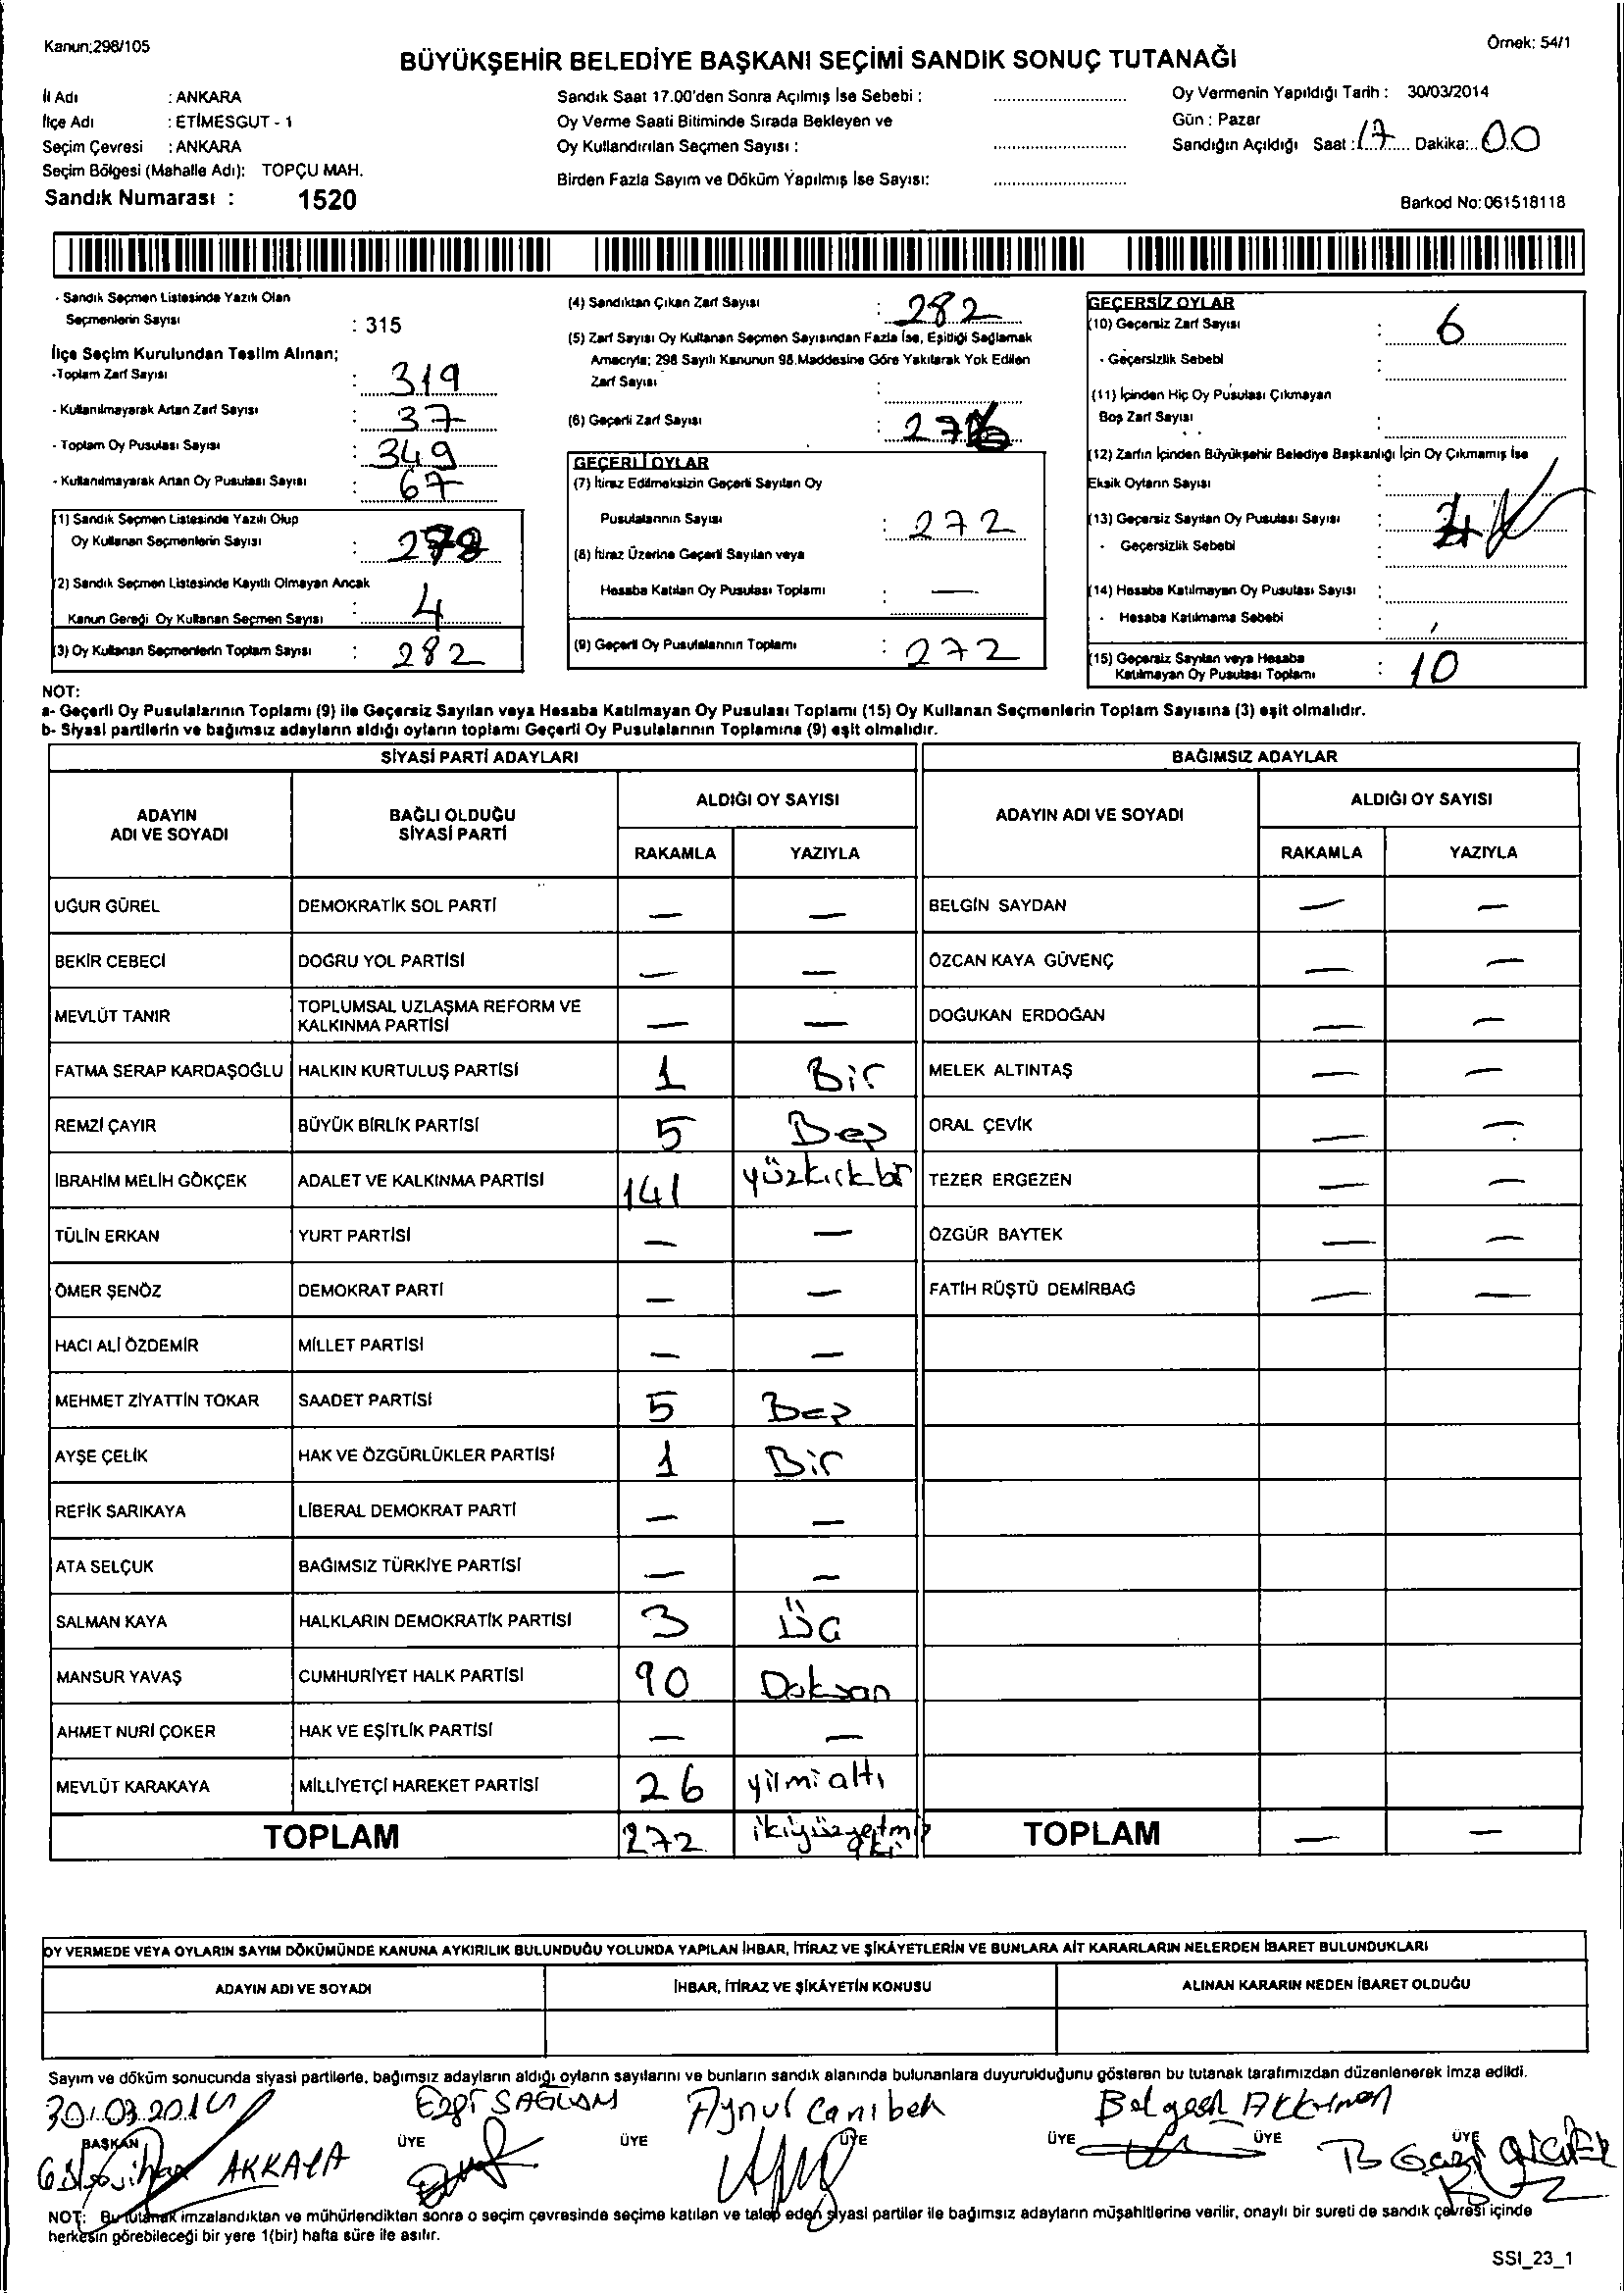 Kanun;298/105
Örnek: 54/1
BÜYÜKŞEHİR BELEDİYE BAŞKANI SEÇİMİ SANDIK SONUÇ TUTANAĞI
İl Adı : ANKARA
İlçe Adı : ETİMESGUT - 1
Seçim Çevresi : ANKARA
Seçim Bölgesi (Mahalle Adı): TOPÇU MAH.
Sandık Numarası : 1520
Sandık Saat 17.00'den Sonra Açılmış İse Sebebi :
Oy Verme Saati Bitiminde Sırada Bekleyen ve
Oy Kullandırılan Seçmen Sayısı :
Birden Fazla Sayım ve Döküm Yapılmış İse Sayısı:
Oy Vermenin Yapıldığı Tarih : 30/03/2014
Gün : Pazar
Sandığın Açıldığı Saat : 17 Dakika: 00
Barkod No: 061518118
- Sandık Seçmen Listesinde Yazılı Olan
Seçmenlerin Sayısı : 315
İlçe Seçim Kurulundan Teslim Alınan;
-Toplam Zarf Sayısı : 319
- Kullanılmayarak Artan Zarf Sayısı : 37
- Toplam Oy Pusulası Sayısı : 349
- Kullanılmayarak Artan Oy Pusulası Sayısı : 67
(1) Sandık Seçmen Listesinde Yazılı Olup
Oy Kullanan Seçmenlerin Sayısı : 278
(2) Sandık Seçmen Listesinde Kayıtlı Olmayan Ancak
Kanun Gereği Oy Kullanan Seçmen Sayısı : 4
(3) Oy Kullanan Seçmenlerin Toplam Sayısı : 282
(4) Sandıktan Çıkan Zarf Sayısı : 282
(5) Zarf Sayısı Oy Kullanan Seçmen Sayısından Fazla İse, Eşitliği Sağlamak
Amacıyla; 298 Sayılı Kanunun 98.Maddesine Göre Yakılarak Yok Edilen
Zarf Sayısı :
(6) Geçerli Zarf Sayısı : 276
GEÇERLİ OYLAR
(7) İtiraz Edilmeksizin Geçerli Sayılan Oy
Pusulalarının Sayısı : 272
(8) İtiraz Üzerine Geçerli Sayılan veya
Hesaba Katılan Oy Pusulası Toplamı : —
(9) Geçerli Oy Pusulalarının Toplamı : 272
GEÇERSİZ OYLAR
(10) Geçersiz Zarf Sayısı : 6
- Geçersizlik Sebebi :
(11) İçinden Hiç Oy Pusulası Çıkmayan
Boş Zarf Sayısı :
(12) Zarfın İçinden Büyükşehir Belediye Başkanlığı İçin Oy Çıkmamış İse
Eksik Oyların Sayısı :
(13) Geçersiz Sayılan Oy Pusulası Sayısı : 4
- Geçersizlik Sebebi :
(14) Hesaba Katılmayan Oy Pusulası Sayısı :
- Hesaba Katılmama Sebebi :
(15) Geçersiz Sayılan veya Hesaba
Katılmayan Oy Pusulası Toplamı : 10
NOT:
a- Geçerli Oy Pusulalarının Toplamı (9) ile Geçersiz Sayılan veya Hesaba Katılmayan Oy Pusulası Toplamı (15) Oy Kullanan Seçmenlerin Toplam Sayısına (3) eşit olmalıdır.
b- Siyasi partilerin ve bağımsız adayların aldığı oyların toplamı Geçerli Oy Pusulalarının Toplamına (9) eşit olmalıdır.
SİYASİ PARTİ ADAYLARI BAĞIMSIZ ADAYLAR
ADAYIN ADI VE SOYADI BAĞLI OLDUĞU SİYASİ PARTİ ALDIĞI OY SAYISI ADAYIN ADI VE SOYADI ALDIĞI OY SAYISI
RAKAMLA YAZIYLA RAKAMLA YAZIYLA
UĞUR GÜREL DEMOKRATİK SOL PARTİ — — BELGİN SAYDAN — —
BEKİR CEBECİ DOĞRU YOL PARTİSİ — — ÖZCAN KAYA GÜVENÇ — —
MEVLÜT TANIR TOPLUMSAL UZLAŞMA REFORM VE KALKINMA PARTİSİ — — DOĞUKAN ERDOĞAN — —
FATMA SERAP KARDAŞOĞLU HALKIN KURTULUŞ PARTİSİ 1 Bir MELEK ALTINTAŞ — —
REMZİ ÇAYIR BÜYÜK BİRLİK PARTİSİ 5 Beş ORAL ÇEVİK — —
İBRAHİM MELİH GÖKÇEK ADALET VE KALKINMA PARTİSİ 141 yüzkırkbir TEZER ERGEZEN — —
TÜLİN ERKAN YURT PARTİSİ — — ÖZGÜR BAYTEK — —
ÖMER ŞENÖZ DEMOKRAT PARTİ — — FATİH RÜŞTÜ DEMİRBAĞ — —
HACI ALİ ÖZDEMİR MİLLET PARTİSİ — —
MEHMET ZİYATTİN TOKAR SAADET PARTİSİ 5 Beş
AYŞE ÇELİK HAK VE ÖZGÜRLÜKLER PARTİSİ 1 Bir
REFİK SARIKAYA LİBERAL DEMOKRAT PARTİ — —
ATA SELÇUK BAĞIMSIZ TÜRKİYE PARTİSİ — —
SALMAN KAYA HALKLARIN DEMOKRATİK PARTİSİ 3 Üç
MANSUR YAVAŞ CUMHURİYET HALK PARTİSİ 90 Doksan
AHMET NURİ ÇOKER HAK VE EŞİTLİK PARTİSİ — —
MEVLÜT KARAKAYA MİLLİYETÇİ HAREKET PARTİSİ 26 yilmi altı
TOPLAM 272 ikiyüzyetmiş iki TOPLAM — —
OY VERMEDE VEYA OYLARIN SAYIM DÖKÜMÜNDE KANUNA AYKIRILIK BULUNDUĞU YOLUNDA YAPILAN İHBAR, İTİRAZ VE ŞİKÂYETLERİN VE BUNLARA AİT KARARLARIN NELERDEN İBARET BULUNDUKLARI
ADAYIN ADI VE SOYADI İHBAR, İTİRAZ VE ŞİKÂYETİN KONUSU ALINAN KARARIN NEDEN İBARET OLDUĞU
Sayım ve döküm sonucunda siyasi partilerle, bağımsız adayların aldığı oyların sayılarını ve bunların sandık alanında bulunanlara duyurulduğunu gösteren bu tutanak tarafımızdan düzenlenerek imza edildi.
30.03.2014 Ezgi SAĞLAM Aynul Canibek
BAŞKAN ÜYE ÜYE ÜYE ÜYE ÜYE ÜYE
AKKAYA
NOT: Bu tutanak imzalandıktan ve mühürlendikten sonra o seçim çevresinde seçime katılan ve talep eden siyasi partiler ile bağımsız adayların müşahitlerine verilir, onaylı bir sureti de sandık çevresi içinde
herkesin görebileceği bir yere 1(bir) hafta süre ile asılır.
SSI_23_1